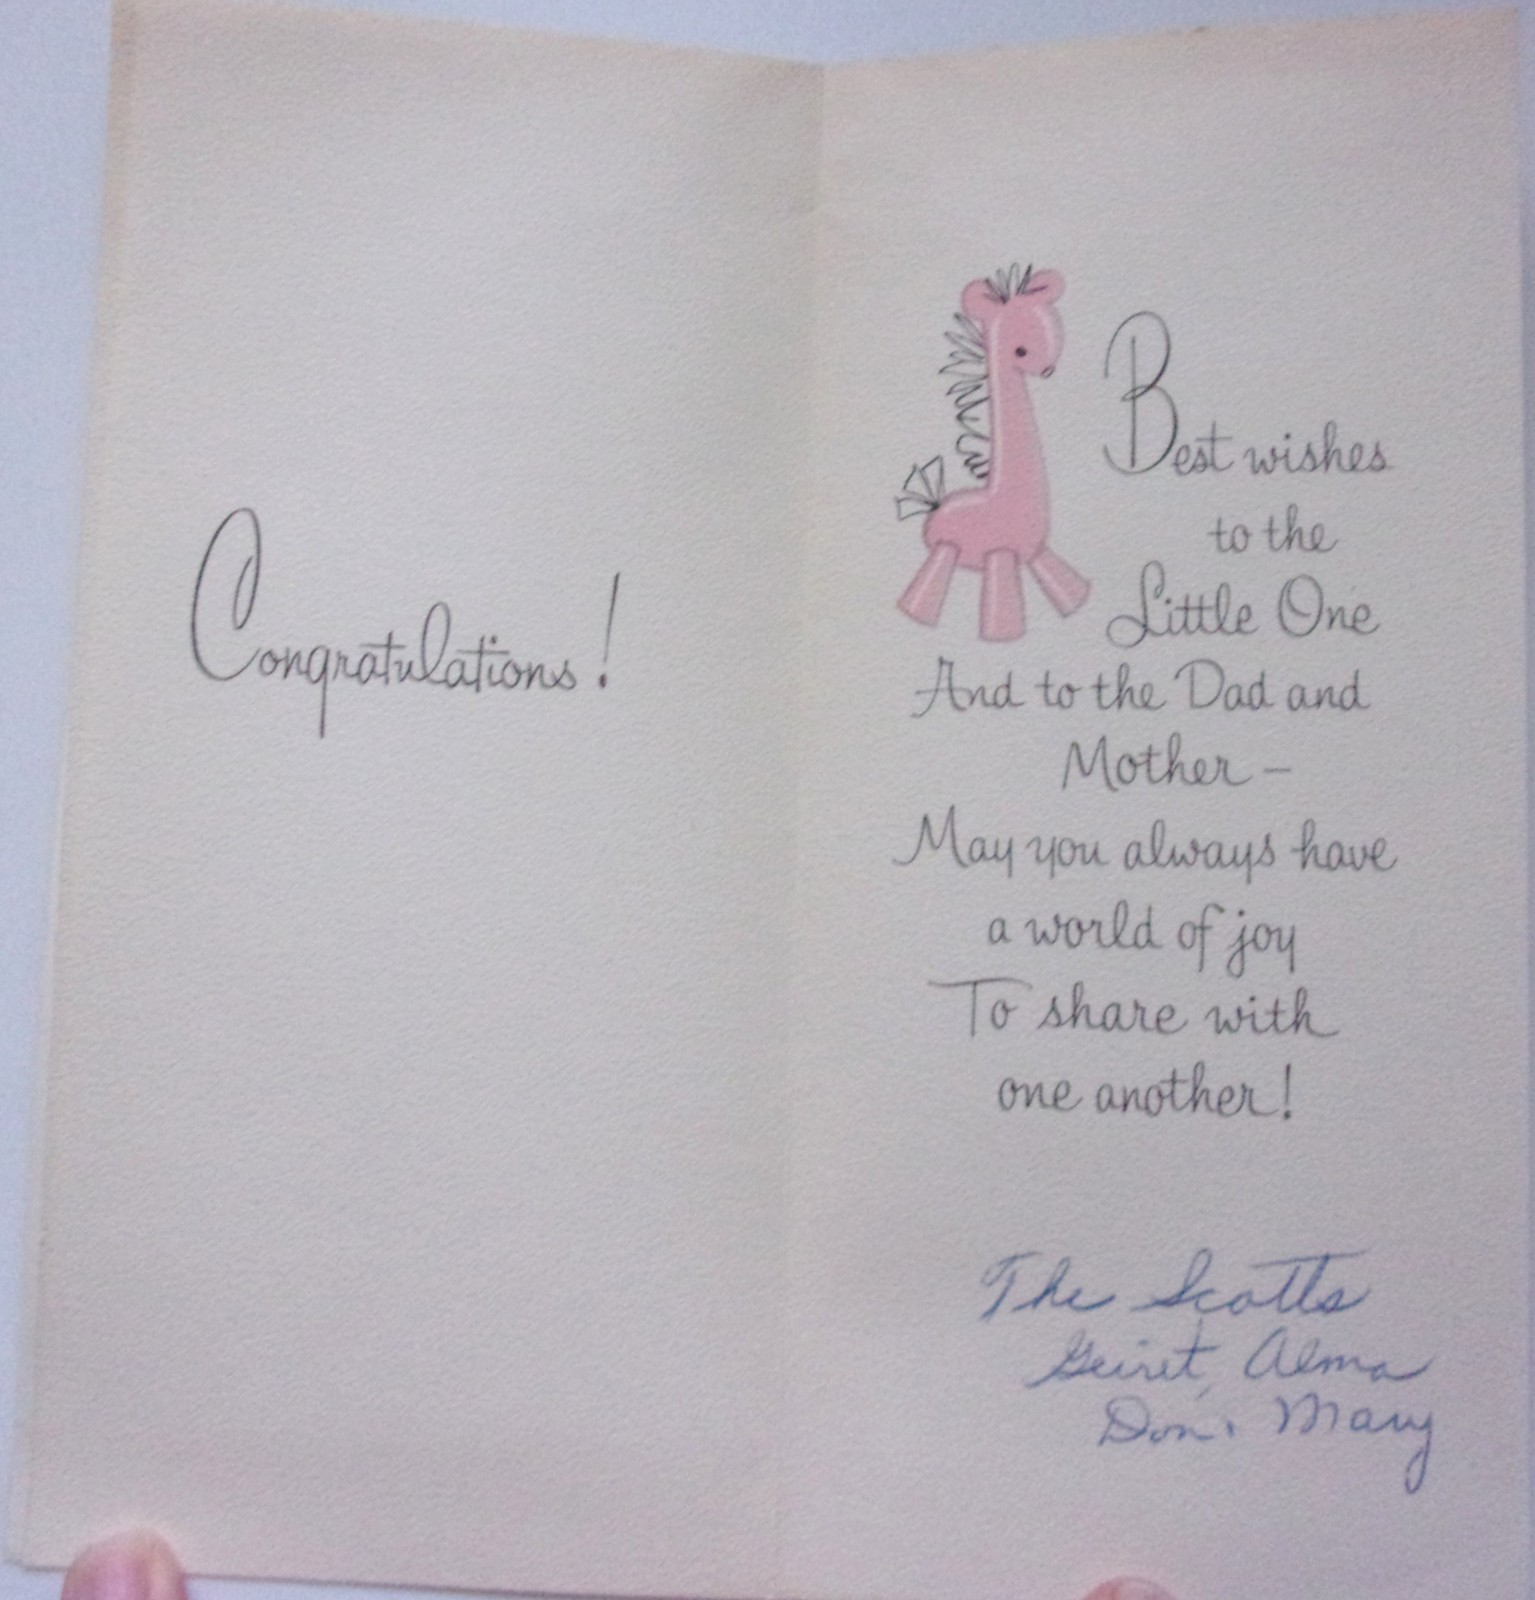 Congratulations!
Best wishes
to the
Little One
And to the Dad and
Mother –
May you always have
a world of joy
To share with
one another!
The Scotts
Alma
Don, Mary